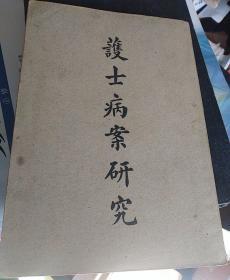 護士病案研究